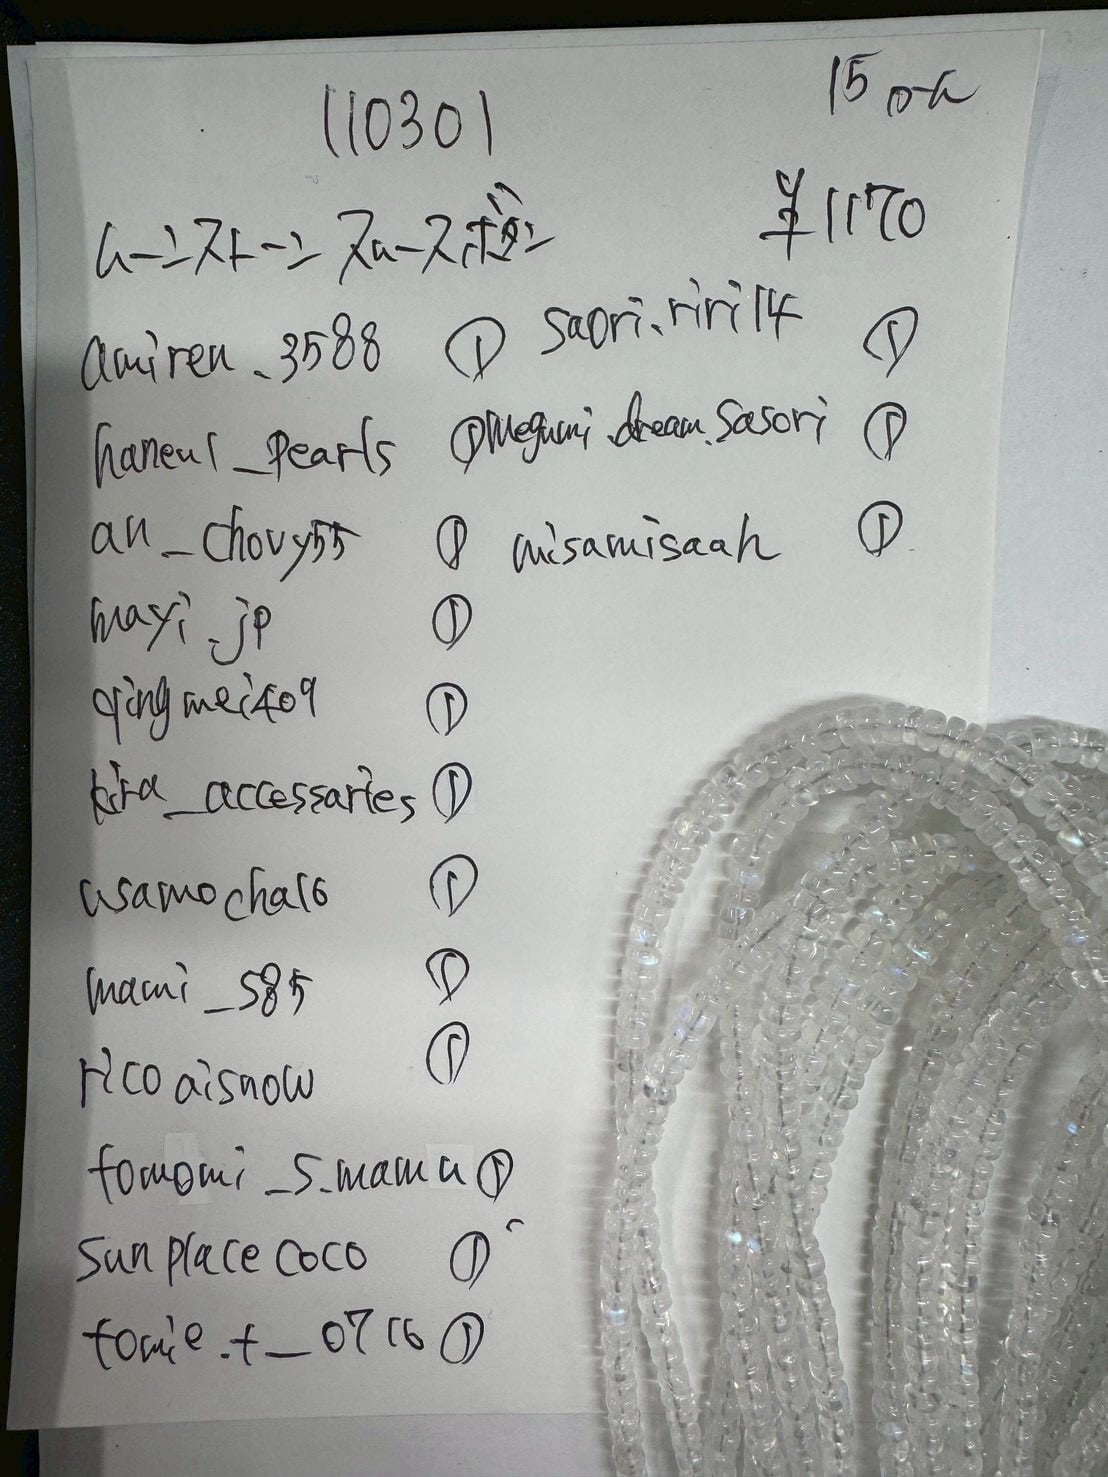 110301
15 ロール
¥1170
ムーンストーン スムースボタン
amiren_3588 ①
saori.riri14 ①
haneul_pearls ①
megumi.dream.sasori ①
an_chovy55 ①
misamisaah ①
mayi.jp ①
qingmei409 ①
kira_accessaries ①
usamocha16 ①
mami_585 ①
ricoaisnow ①
tomomi_s.mama ①
sunplacecoco ①
tomie.t_0716 ①